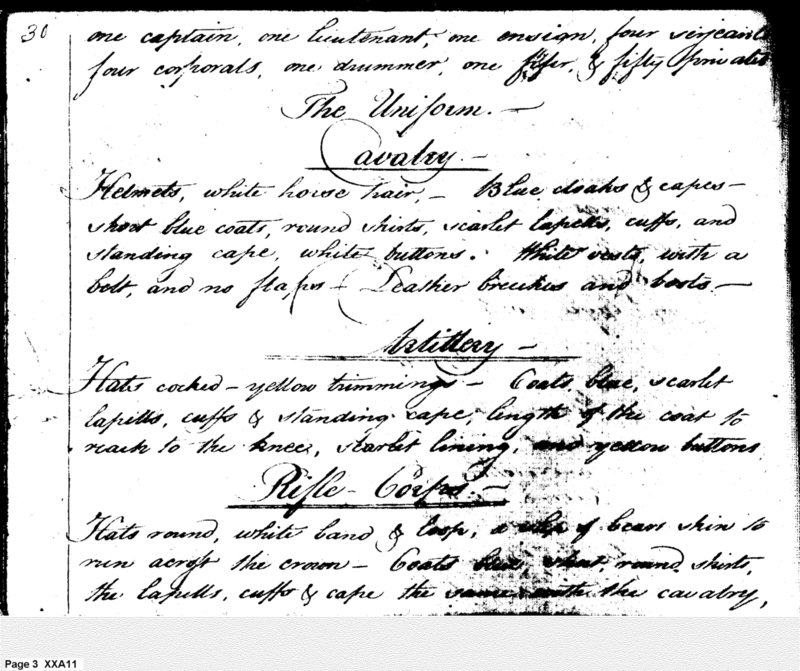 30
one captain, one lieutenant, one ensign, four serjeants
four corporals, one drummer, one fifer, & fifty privates
The Uniform. —
Cavalry —
Helmets, white horse hair, — Blue cloaks & capes —
short blue coats, round skirts, scarlet lapells, cuffs, and
standing cape, white buttons. White vests, with a
belt, and no flaps — Leather breeches and boots —
Artillery —
Hats cocked — yellow trimmings — Coats blue, scarlet
lapells, cuffs & standing cape, length of the coat to
reach to the knee, scarlet lining, and yellow buttons
Rifle-Corps. —
Hats round, white band & loop, a slip of bears skin to
run across the crown — Coats blue, short, round skirts,
the lapells, cuffs & cape the same with the cavalry,
Page 3 XXA11